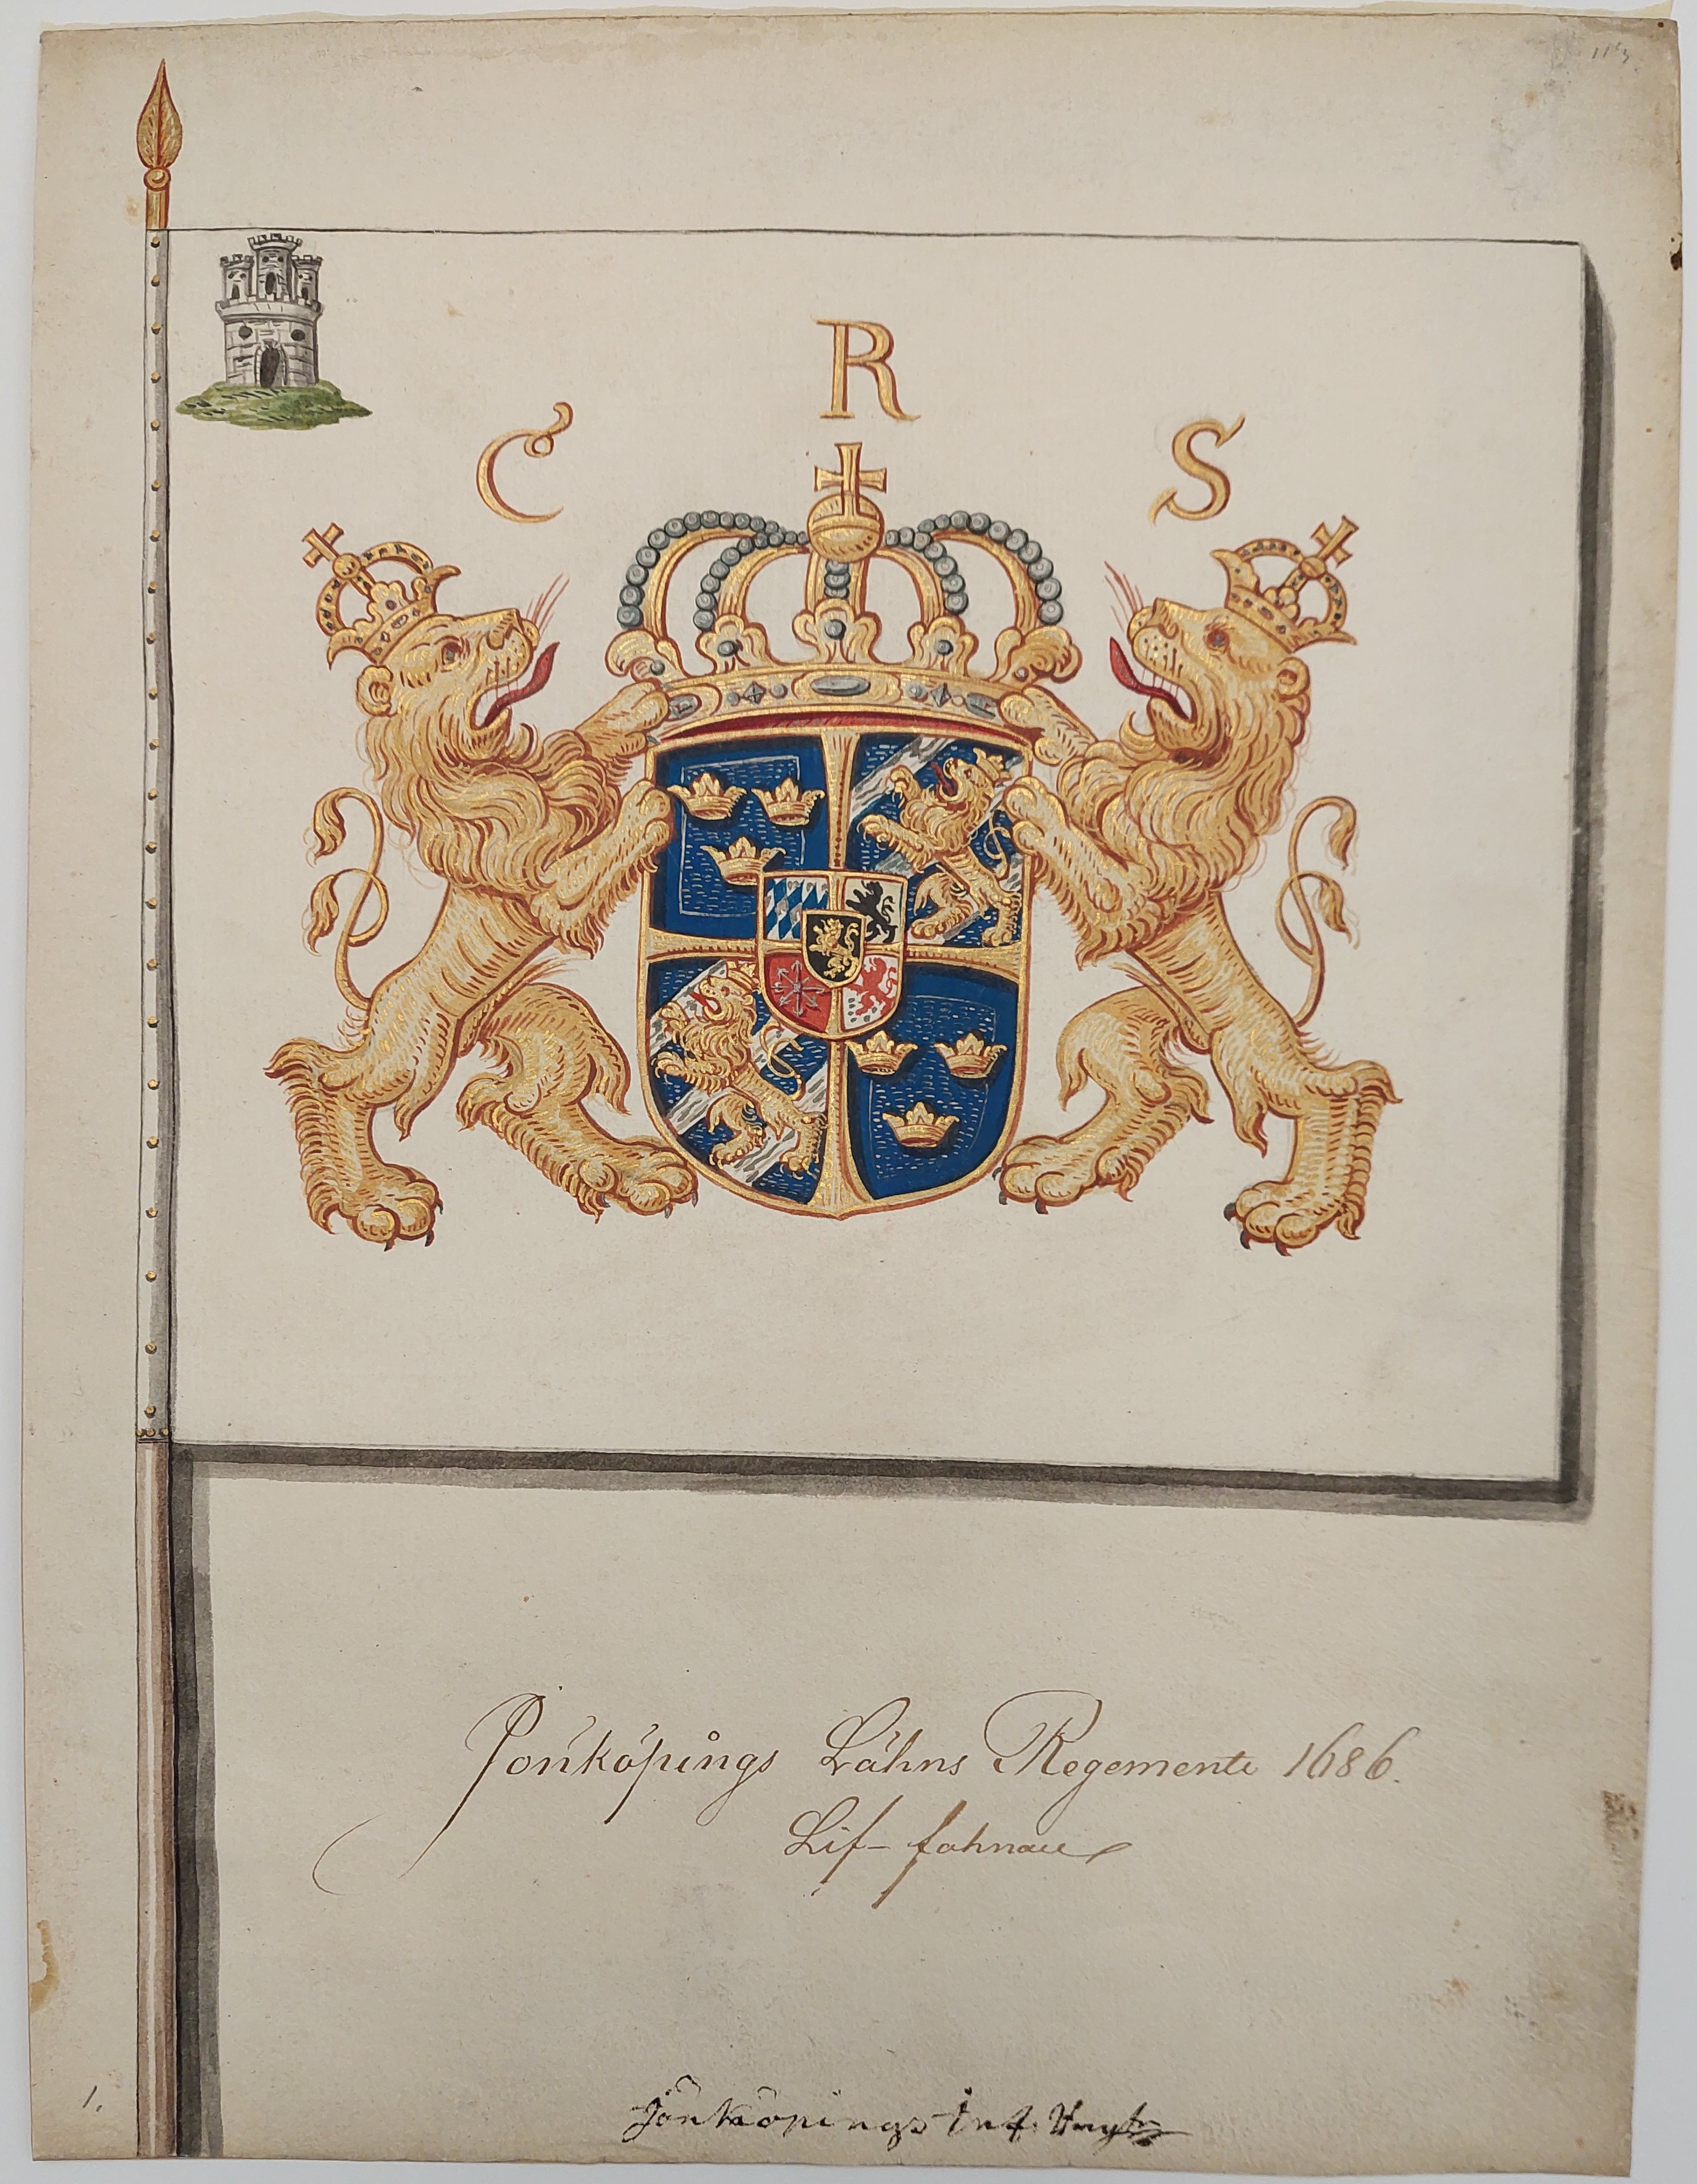 C R S
Jonköpings Lähns Regemente 1686.
Lif-fahnan
1.
Jönköpings Inf.